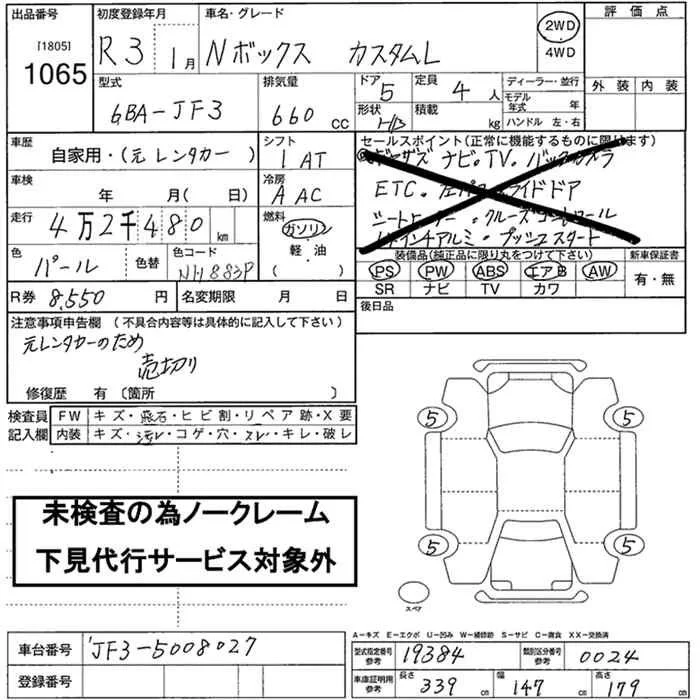 出品番号 初度登録年月 車名・グレード 評価点
[1805] 1065 R3 1月 Nボックス カスタムL 2WD 4WD
外装 内装
型式 排気量 ドア 5 定員 4人 ディーラー・並行
6BA-JF3 660 CC 形状 H/B 積載 kg モデル年式 年
ハンドル 左・右
車歴 シフト セールスポイント(正常に機能するものに限ります)
自家用・(元レンタカー) 1AT ナビ。TV。バックカメラ
車検 年 月(日) 冷房 AAC ETC。左パワースライドドア
走行 4万2千480km 燃料 ガソリン 軽・油 シートヒーター。クルーズコントロール
14インチアルミ。プッシュスタート
色 パール 色替 色コード NH883P 装備品(純正品に限り丸をつけて下さい) 新車保証書
PS PW ABS エアB AW 有・無
SR ナビ TV カワ
R券 8,550円 名変期限 月 日 後日品
注意事項申告欄(不具合内容等は具体的に記入して下さい)
元レンタカーのため
売切り
修復歴 有(箇所 )
検査員 FW キズ・飛石・ヒビ割・リペア跡・X要
記入欄 内装 キズ・汚レ・コゲ・穴・スレ・キレ・破レ
5 5
5 5
未検査の為ノークレーム
下見代行サービス対象外
スペア
A-キズ E-エクボ U-凹み W-補修跡 S-サビ C-腐食 XX-交換済
車台番号 JF3-5008027 型式指定番号 参考 19384 類別区分番号 参考 0024
登録番号 車庫証明用 参考 長さ 339cm 幅 147cm 高さ 179cm